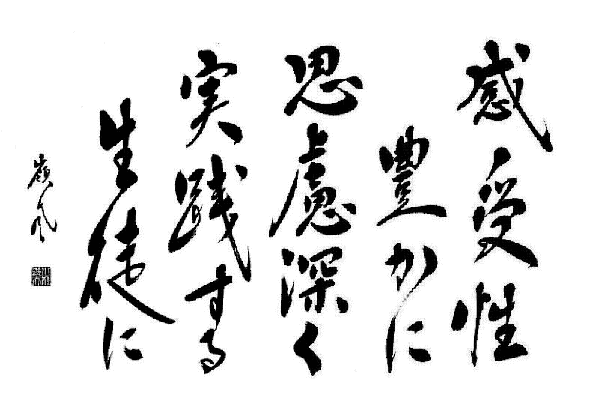 感受性
豊かに
思慮深く
実践する
生徒に
嶺風